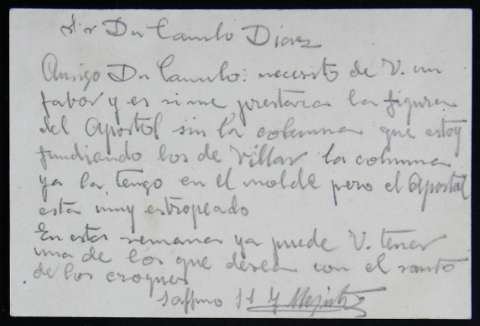 Sr Dn Camilo Diaz
Amigo Dn Camilo: necesito de V. un
fabor y es si me prestaria la figura
del Apostol sin la columna que estoy
fundiando los de Villar la columna
ya la tengo en el molde pero el Apostol
esta muy estropeado
En esta semana ya puede V. tener
una de los que desea con el santo
de los croques